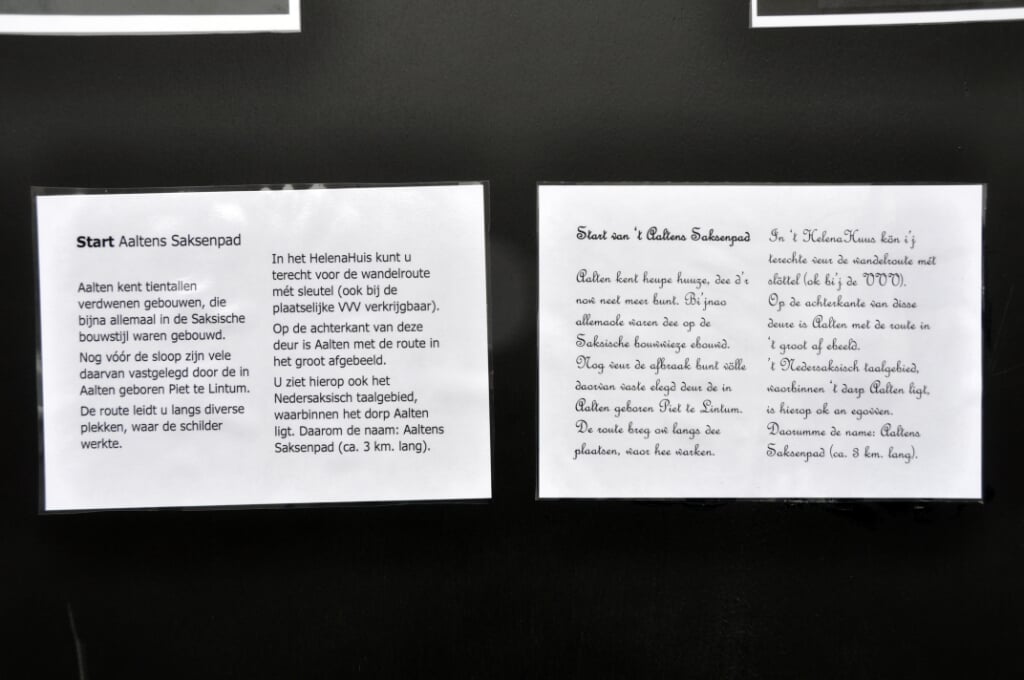 Start Aaltens Saksenpad
Aalten kent tientallen
verdwenen gebouwen, die
bijna allemaal in de Saksische
bouwstijl waren gebouwd.
Nog vóór de sloop zijn vele
daarvan vastgelegd door de in
Aalten geboren Piet te Lintum.
De route leidt u langs diverse
plekken, waar de schilder
werkte.
In het HelenaHuis kunt u
terecht voor de wandelroute
mét sleutel (ook bij de
plaatselijke VVV verkrijgbaar).
Op de achterkant van deze
deur is Aalten met de route in
het groot afgebeeld.
U ziet hierop ook het
Nedersaksisch taalgebied,
waarbinnen het dorp Aalten
ligt. Daarom de naam: Aaltens
Saksenpad (ca. 3 km. lang).
Start van 't Aaltens Saksenpad
Aalten kent heupe huuze, dee d'r
now neet meer bunt. Bi'jnao
allemaole waren dee op de
Saksische bouwwieze ebouwd.
Nog veur de afbraak bunt völle
daorvan vaste elegd deur de in
Aalten geboren Piet te Lintum.
De route breg ow langs dee
plaatsen, waor hee warken.
In 't HelenaHuus kön i'j
terechte veur de wandelroute mét
slöttel (ok bi'j de VVV).
Op de achterkante van disse
deure is Aalten met de route in
't groot af ebeeld.
't Nedersaksisch taalgebied,
waorbinnen 't darp Aalten ligt,
is hierop ok an egowen.
Daorumme de name: Aaltens
Saksenpad (ca. 3 km. lang).